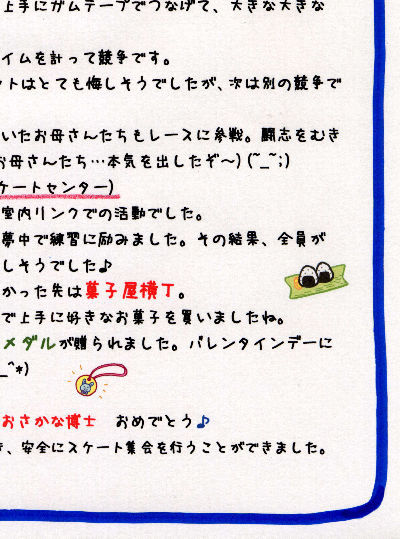 上手にガムテープでつなげて、大きな大きな
イムを計って競争です。
ットはとても悔しそうでしたが、次は別の競争で
いたお母さんたちもレースに参戦。闘志をむき
お母さんたち…本気を出したぞ～)(~_~;)
ケートセンター)
室内リンクでの活動でした。
夢中で練習に励みました。その結果、全員が
しそうでした♪
かった先は菓子屋横丁。
で上手に好きなお菓子を買いましたね。
メダルが贈られました。バレンタインデーに
_^*)
おさかな博士 おめでとう♪
き、安全にスケート集会を行うことができました。